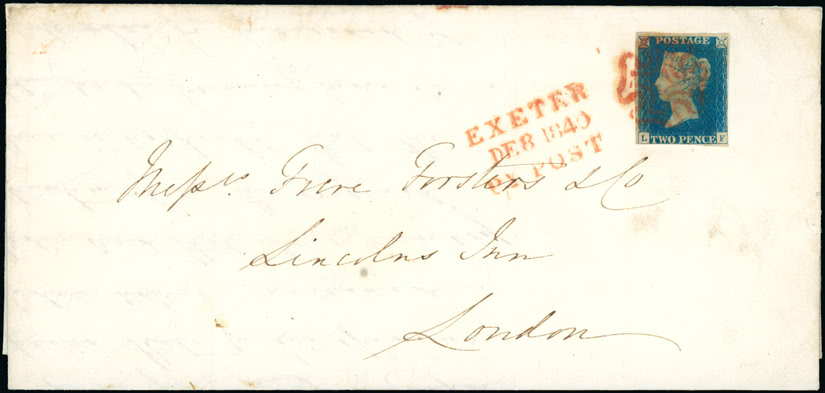 POSTAGE
TWO PENCE
L F
EXETER
DE 8 1840
Py POST
Messrs. Frere Forsters & Co
Lincolns Inn
London